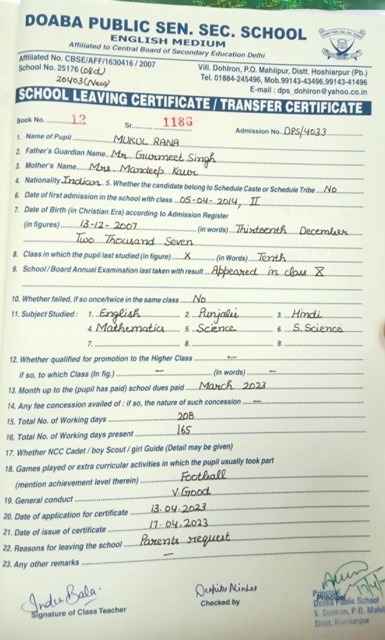 DOABA PUBLIC SEN. SEC. SCHOOL
ENGLISH MEDIUM
Affiliated to Central Board of Secondary Education Delhi
Affiliated No. CBSE/AFF/1630416 / 2007
School No. 25176 (Old)
20403 (New)
Vill. Dohlron, P.O. Mahilpur, Distt. Hoshiarpur (Pb.)
Tel. 01884-245496, Mob.99143-43496,99143-41496
E-mail : dps_dohlron@yahoo.co.in
SCHOOL LEAVING CERTIFICATE / TRANSFER CERTIFICATE
Book No. 12 Sr. 1186 Admission No. DPS/4033
1. Name of Pupil MUKUL RANA
2. Father's Guardian Name Mr. Gurmeet Singh
3. Mother's Name Mrs. Mandeep Kaur
4. Nationality Indian 5. Whether the candidate belong to Schedule Caste or Schedule Tribe No
6. Date of first admission in the school with class 05-04-2014, II
7. Date of Birth (in Christian Era) according to Admission Register
(in figures) 13-12-2007 (in words) Thirteenth December
Two Thousand Seven
8. Class in which the pupil last studied (in figure) X (in Words) Tenth
9. School / Board Annual Examination last taken with result Appeared in class X
10. Whether failed, if so once/twice in the same class No
11. Subject Studied : 1. English 2. Punjabi 3. Hindi
4. Mathematics 5. Science 6. S.Science
7. 8. 9.
12. Whether qualified for promotion to the Higher Class —
if so, to which Class (In fig.) — (In words) —
13. Month up to the (pupil has paid) school dues paid March 2023
14. Any fee concession availed of : if so, the nature of such concession —
15. Total No. of Working days 208
16. Total No. of Working days present 165
17. Whether NCC Cadet / boy Scout / girl Guide (Detail may be given)
18. Games played or extra curricular activities in which the pupil usually took part
(mention achievement level therein) Football
19. General conduct V.Good
20. Date of application for certificate 13.04.2023
21. Date of issue of certificate 17.04.2023
22. Reasons for leaving the school Parents request
23. Any other remarks —
Indu Bala
Signature of Class Teacher
Checked by
Principal
Principal
Doaba Public School
V. Dohlron, P.O. Mahil
Distt. Hoshiarpur